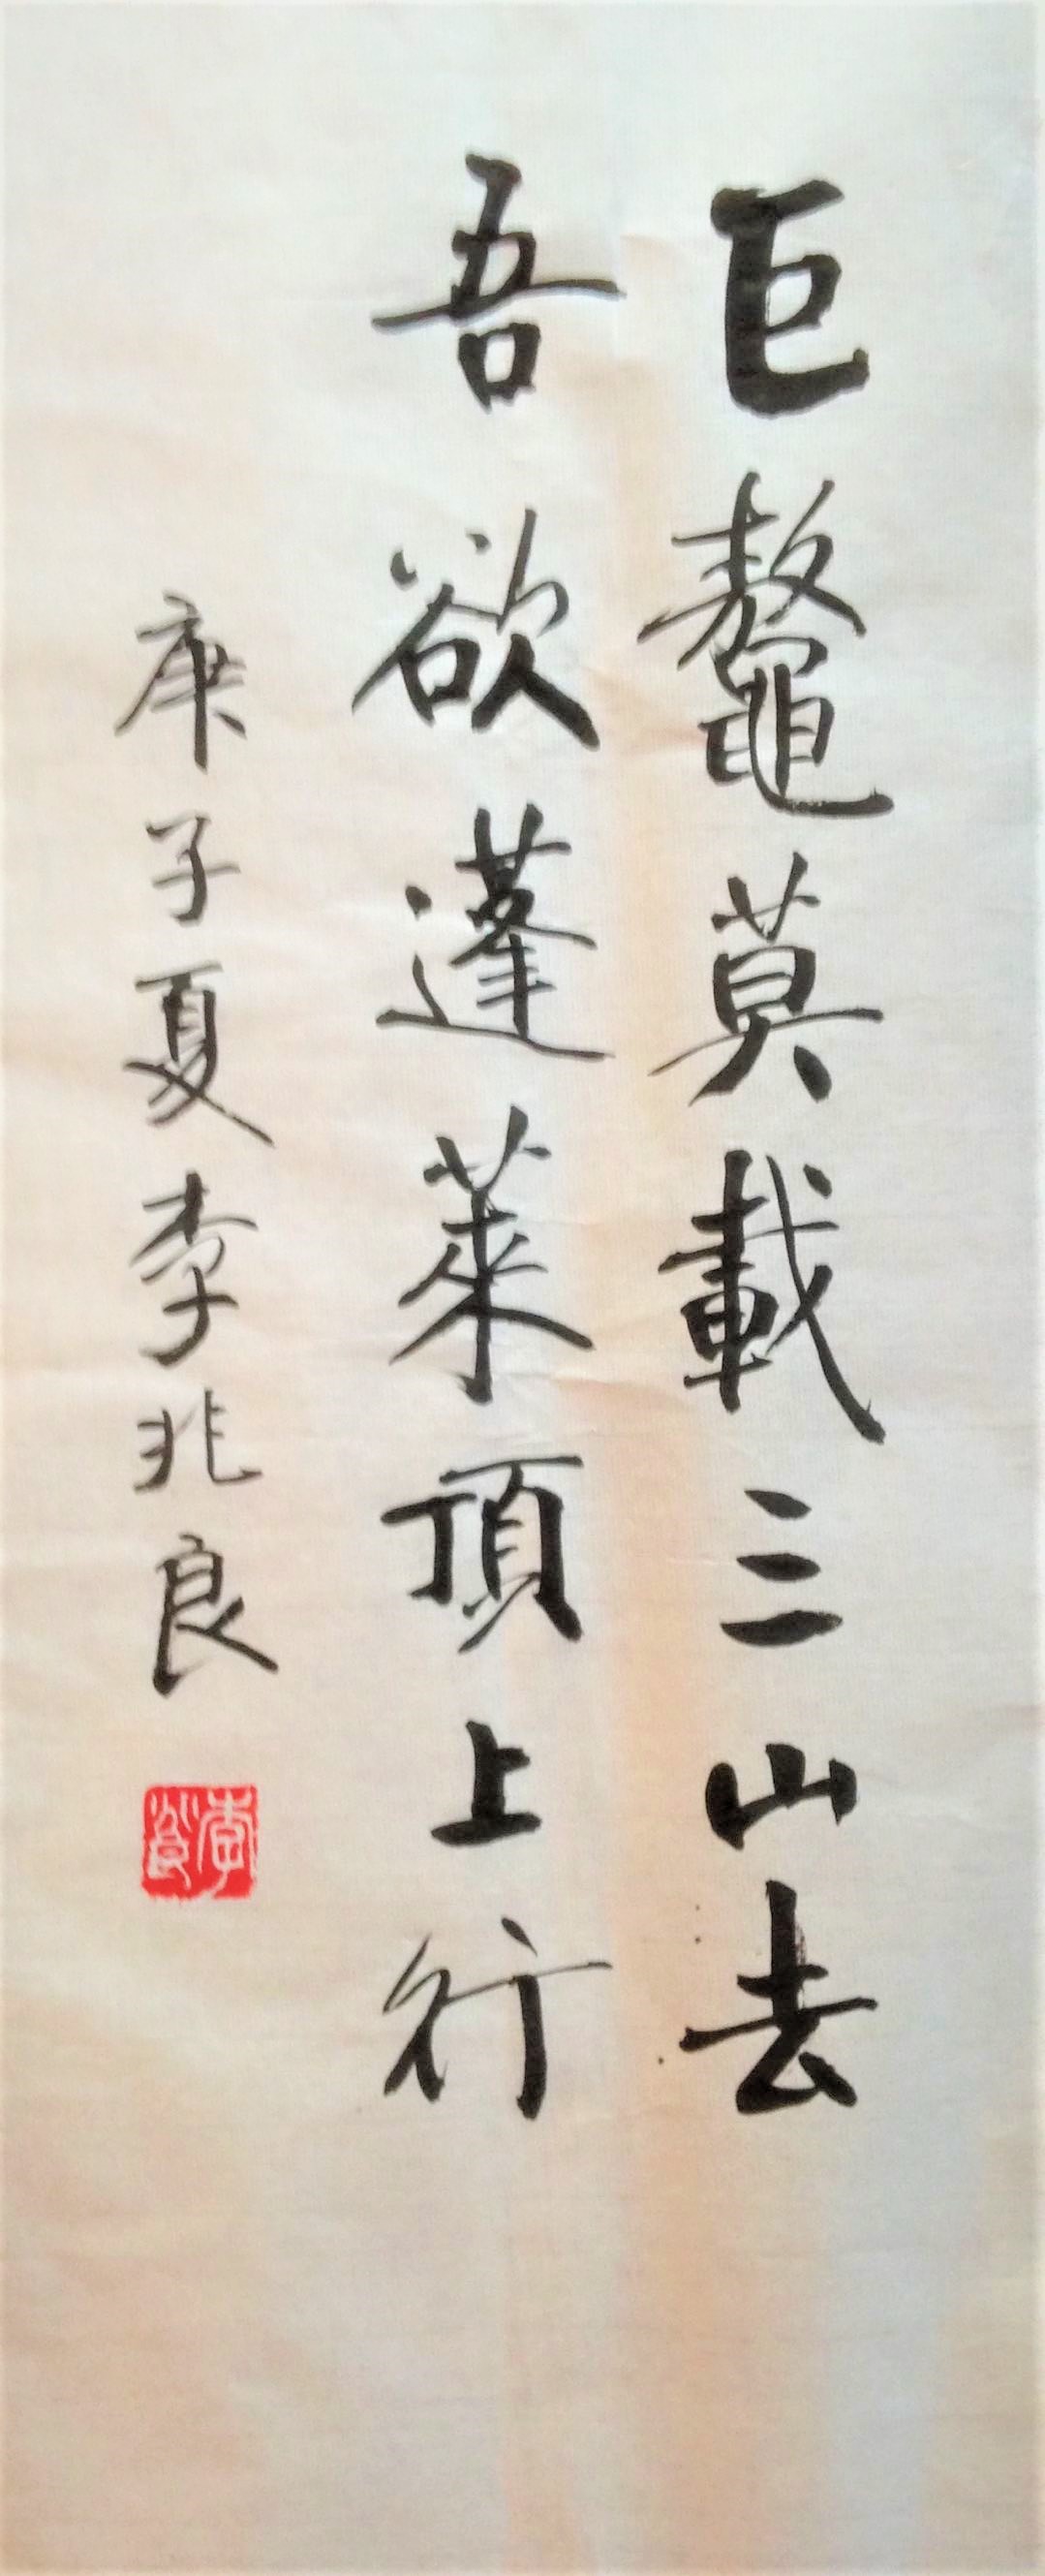 巨鼇莫載三山去
吾欲蓬萊頂上行
庚子夏李兆良